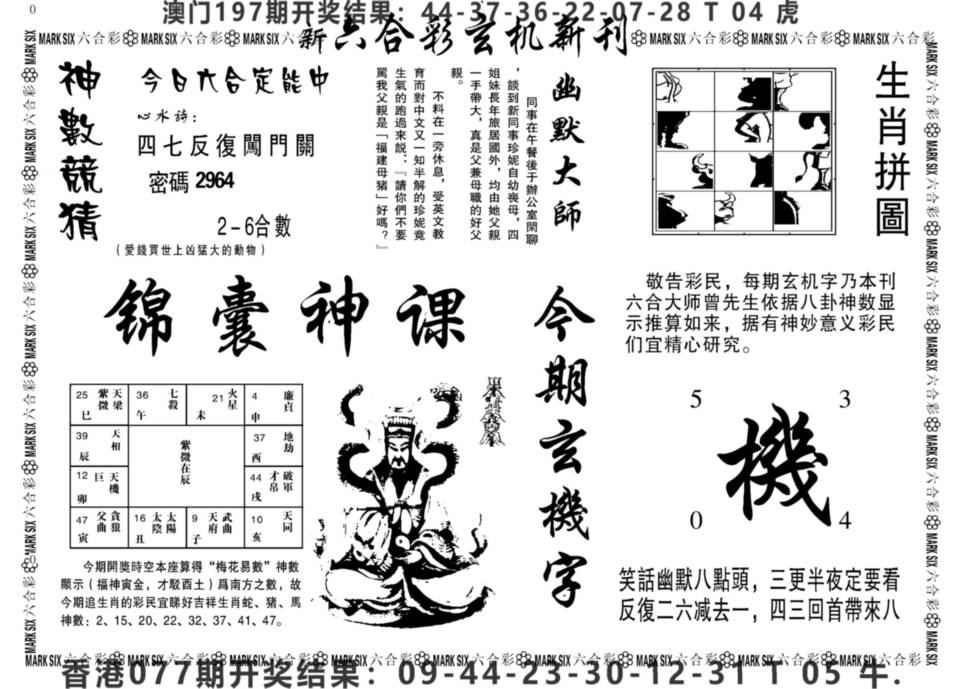 0
澳门197期开奖结果：44-37-36-22-07-28 T 04 虎
MARK SIX 六合彩 MARK SIX 六合彩 MARK SIX 六合彩
新六合彩玄机新刊
MARK SIX 六合彩 MARK SIX 六合彩 MARK SIX 六合彩
神數競猜
今日六合定能中
心水詩：
四七反復闖門關
密碼 2964
2－6合數
（愛錢買世上凶猛大的動物）
幽默大師
同事在午餐後于辦公室閑聊
，談到新同事珍妮自幼喪母，四
姐妹長年旅居國外，均由她父親
一手帶大，真是父兼母職的好父
親。
不料在一旁休息，受英文教
育而對中文又一知半解的珍妮竟
生氣的跑過來説：『請你們不要
駡我父親是「福建母猪」好嗎？』
生肖拼圖
敬告彩民，每期玄机字乃本刊
六合大师曾先生依据八卦神数显
示推算如来，据有神妙意义彩民
们宜精心研究。
锦囊神课
今期玄機字
25 紫微 天梁 巳
36 七殺 午
21 火星 未
4 廉貞 申
39 天相 辰
紫微在辰
37 地劫 酉
12 巨 天機 卯
44 才帛 破軍 戌
47 父曲 貪狼 寅
16 太陰 太陽 丑
9 天府 武曲 子
10 天同 亥
5
3
機
0
4
今期開獎時空本座算得“梅花易數”神數
顯示（福神寅金，才駁酉土）爲南方之數，故
今期追生肖的彩民宜睇好吉祥生肖蛇、猪、馬
神數：2、15、20、22、32、37、41、47。
笑話幽默八點頭，三更半夜定要看
反復二六减去一，四三回首帶來八
MARK SIX 六合彩 MARK SIX 六合彩 MARK SIX 六合彩 MARK SIX 六合彩 MARK SIX 六合彩 MARK SIX 六合彩 MARK SIX 六合彩 MARK SIX 六合彩 MARK SIX 六合彩
香港077期开奖结果：09-44-23-30-12-31 T 05 牛.